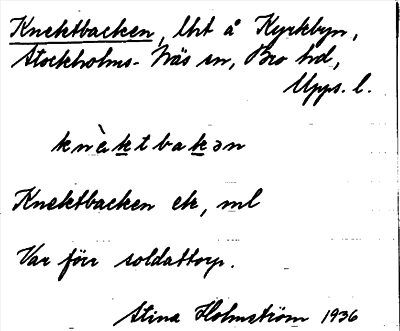 Knektbacken, lht å Kyrkbyn,
Stockholms-Näs sn, Bro hd,
Upps. l.
knὲktbakən
Knektbacken ek, ml
Var förr soldattorp.
Stina Holmström 1936